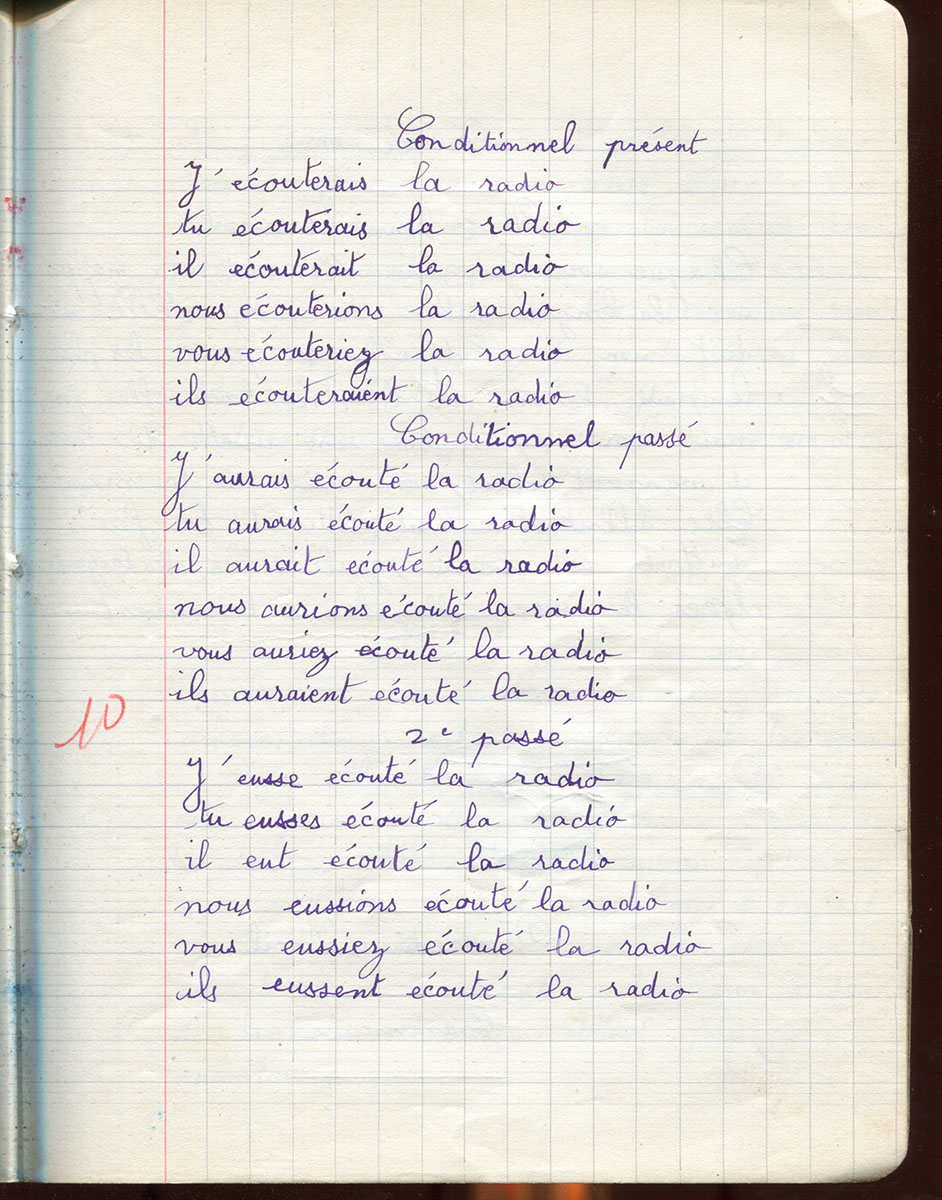 Conditionnel présent
J'écouterais la radio
tu écouterais la radio
il écouterait la radio
nous écouterions la radio
vous écouteriez la radio
ils écouteraient la radio
Conditionnel passé
J'aurais écouté la radio
tu aurais écouté la radio
il aurait écouté la radio
nous aurions écouté la radio
vous auriez écouté la radio
ils auraient écouté la radio
10
2e passé
J'eusse écouté la radio
tu eusses écouté la radio
il eut écouté la radio
nous eussions écouté la radio
vous eussiez écouté la radio
ils eussent écouté la radio